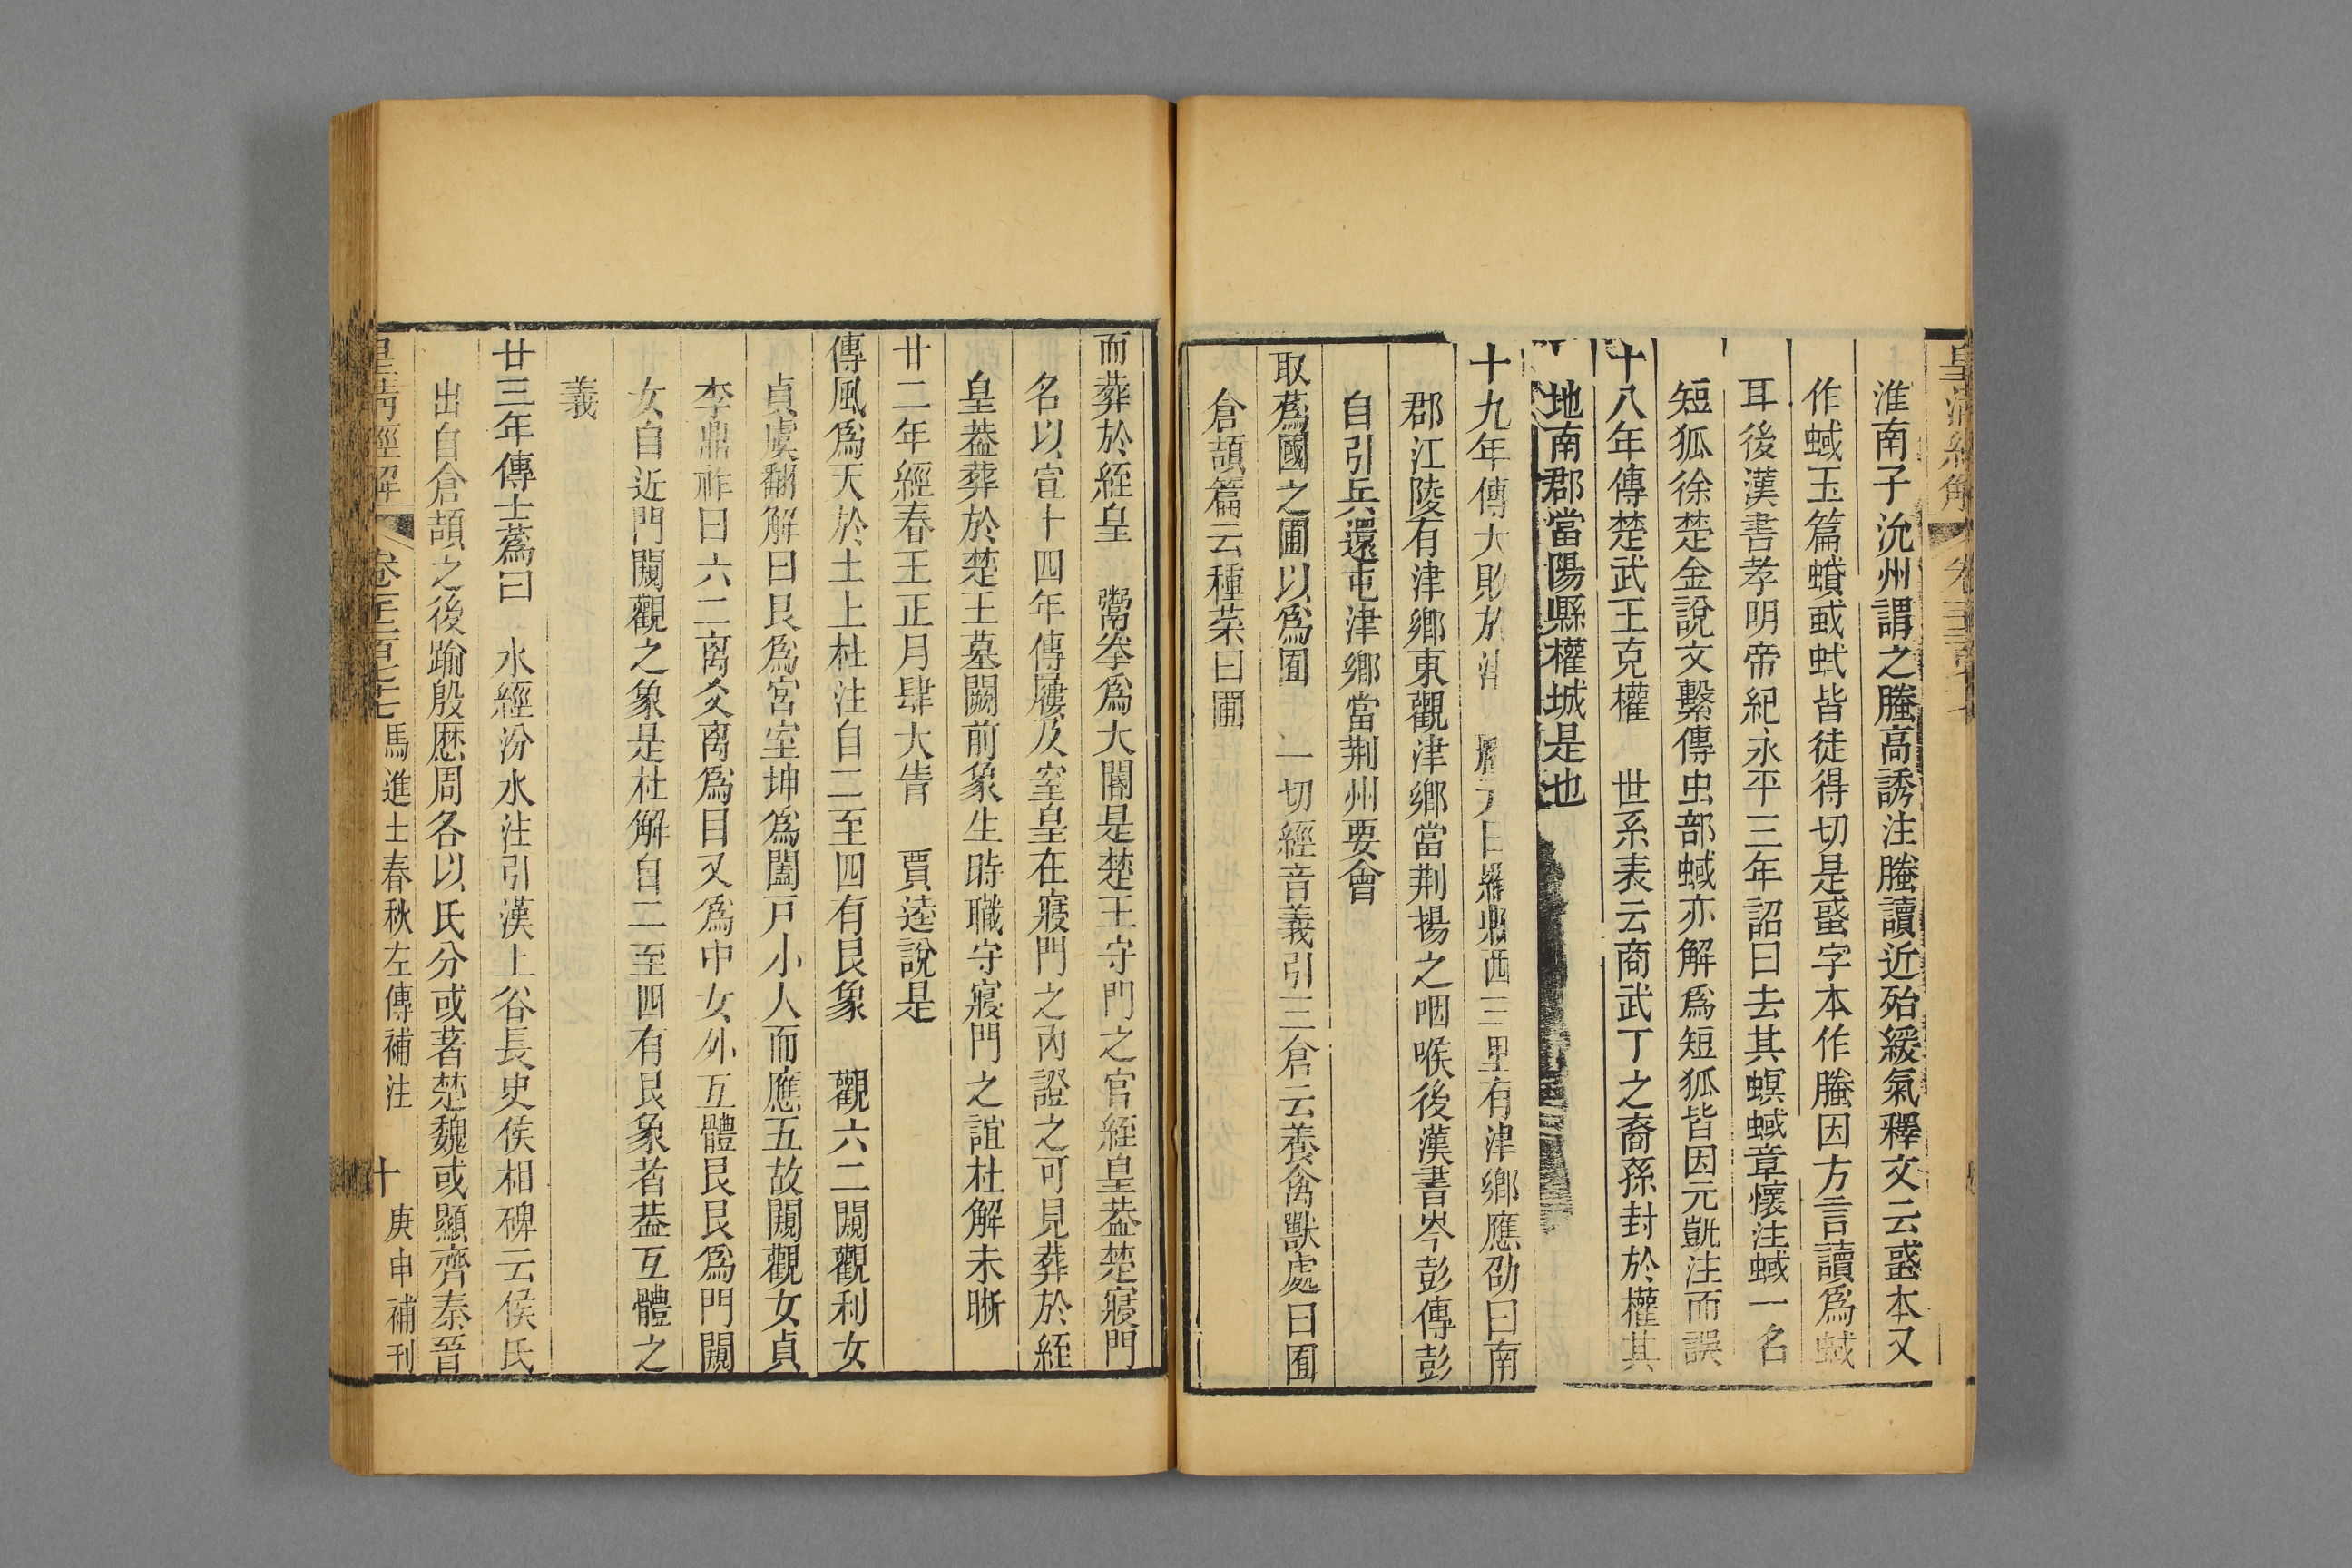 皇清經解
淮南子沇州謂之螣高誘注螣讀近殆緩氣釋文云蟘本又
作蜮玉篇蟦蟘蚮皆徒得切是蟘字本作螣因方言讀爲蜮
耳後漢書孝明帝紀永平三年詔曰去其螟蜮章懷注蜮一名
短狐徐楚金說文繫傳虫部蜮亦解爲短狐皆因元凱注而誤
十八年傳楚武王克權 世系表云商武丁之裔孫封於權其
地南郡當陽縣權城是也
十九年傳大敗於津 縣西三里有津鄉應劭曰南
郡江陵有津鄉東觀津鄉當荆揚之咽喉後漢書岑彭傳彭
自引兵還屯津鄉當荆州要會
取蔿國之圃以爲囿 一切經音義引三倉云養禽獸處曰囿
倉頡篇云種菜曰圃
而葬於絰皇 鬻拳爲大閽是楚王守門之官絰皇葢楚寢門
名以宣十四年傳屨及窒皇在寢門之內證之可見葬於絰
皇葢葬於楚王墓闕前象生時職守寢門之誼杜解未晰
廿二年經春王正月肆大眚 賈逵說是
傳風爲天於土上杜注自二至四有艮象 觀六二闚觀利女
貞虞翻解曰艮爲宮室坤爲闔戸小人而應五故闚觀女貞
李鼎祚曰六二离爻离爲目又爲中女外互體艮艮爲門闚
女自近門闚觀之象是杜解自二至四有艮象者葢互體之
義
廿三年傳士蔿曰 水經汾水注引漢上谷長史侯相碑云侯氏
出自倉頡之後踰殷厯周各以氏分或著楚魏或顯齊秦晉
皇清經解 卷三百七十七 馬進士春秋左傳補注 十 庚申補刊